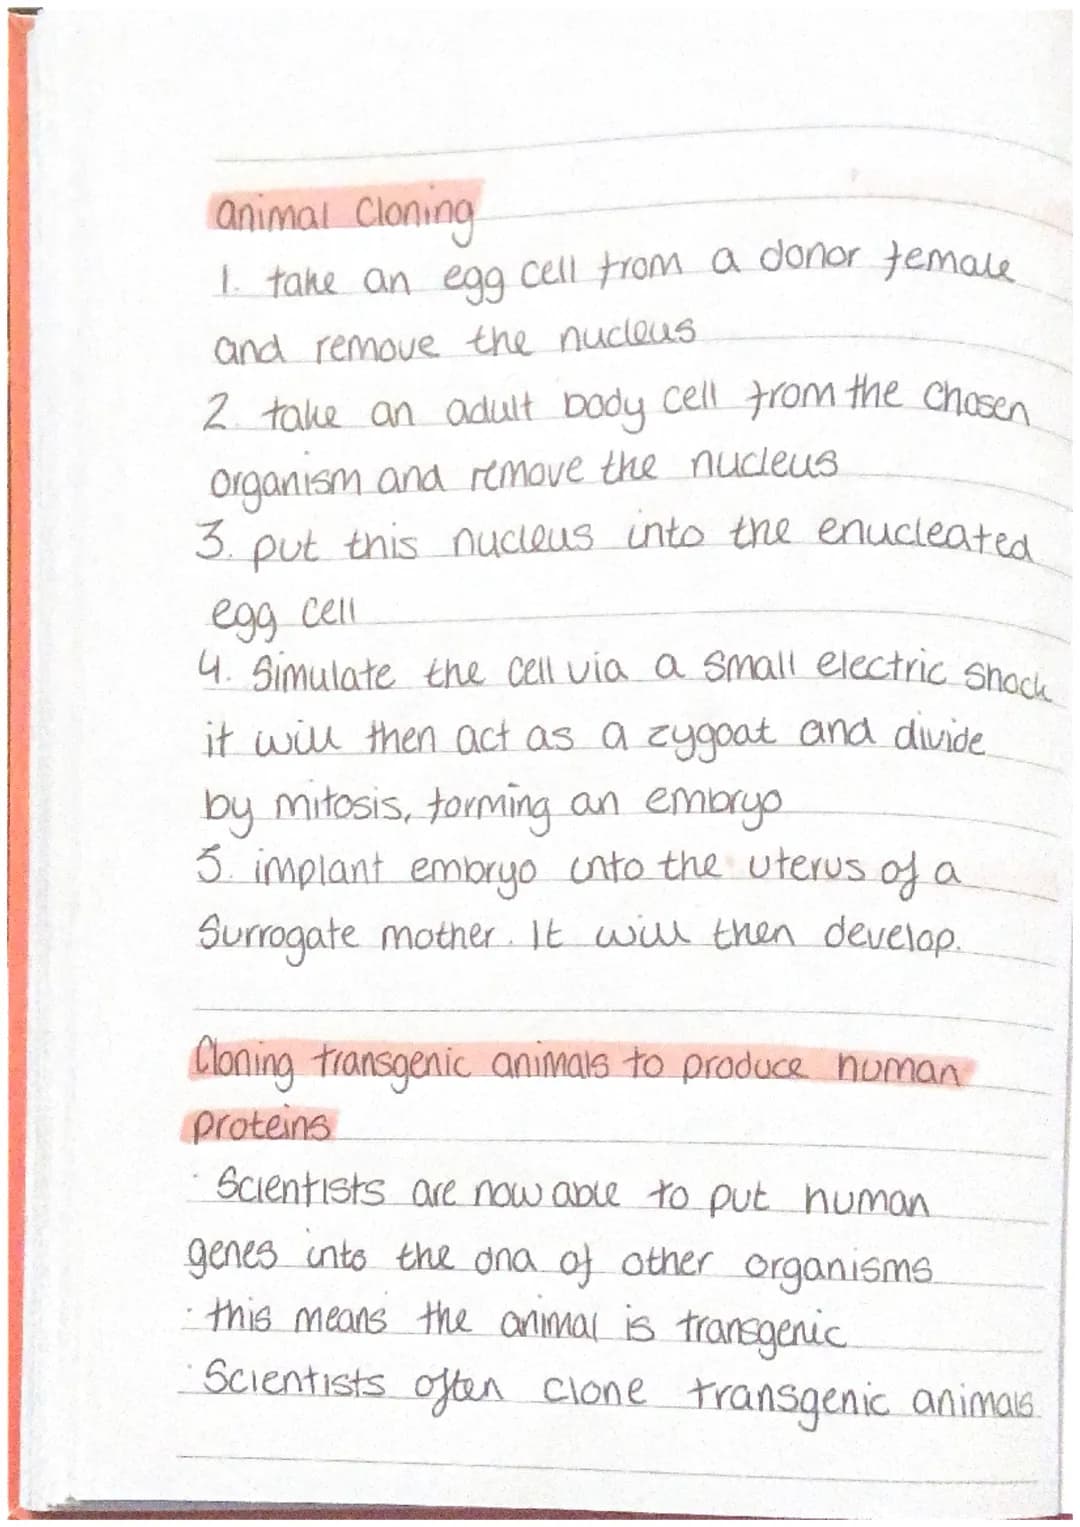 animal Cloning
1. take an egg cell from a donor female
and remove the nucleus
2. take an adult body cell from the chosen
organism and remove the nucleus
3. put this nucleus into the enucleated
egg cell
4. Simulate the cell via a small electric shock
it will then act as a zygoat and divide
by mitosis, forming an embryo
5. implant embryo into the uterus of a
Surrogate mother. It will then develop.
Cloning transgenic animals to produce human
proteins
· Scientists are now able to put human
genes into the dna of other organisms
· this means the animal is transgenic
· Scientists often clone transgenic animals